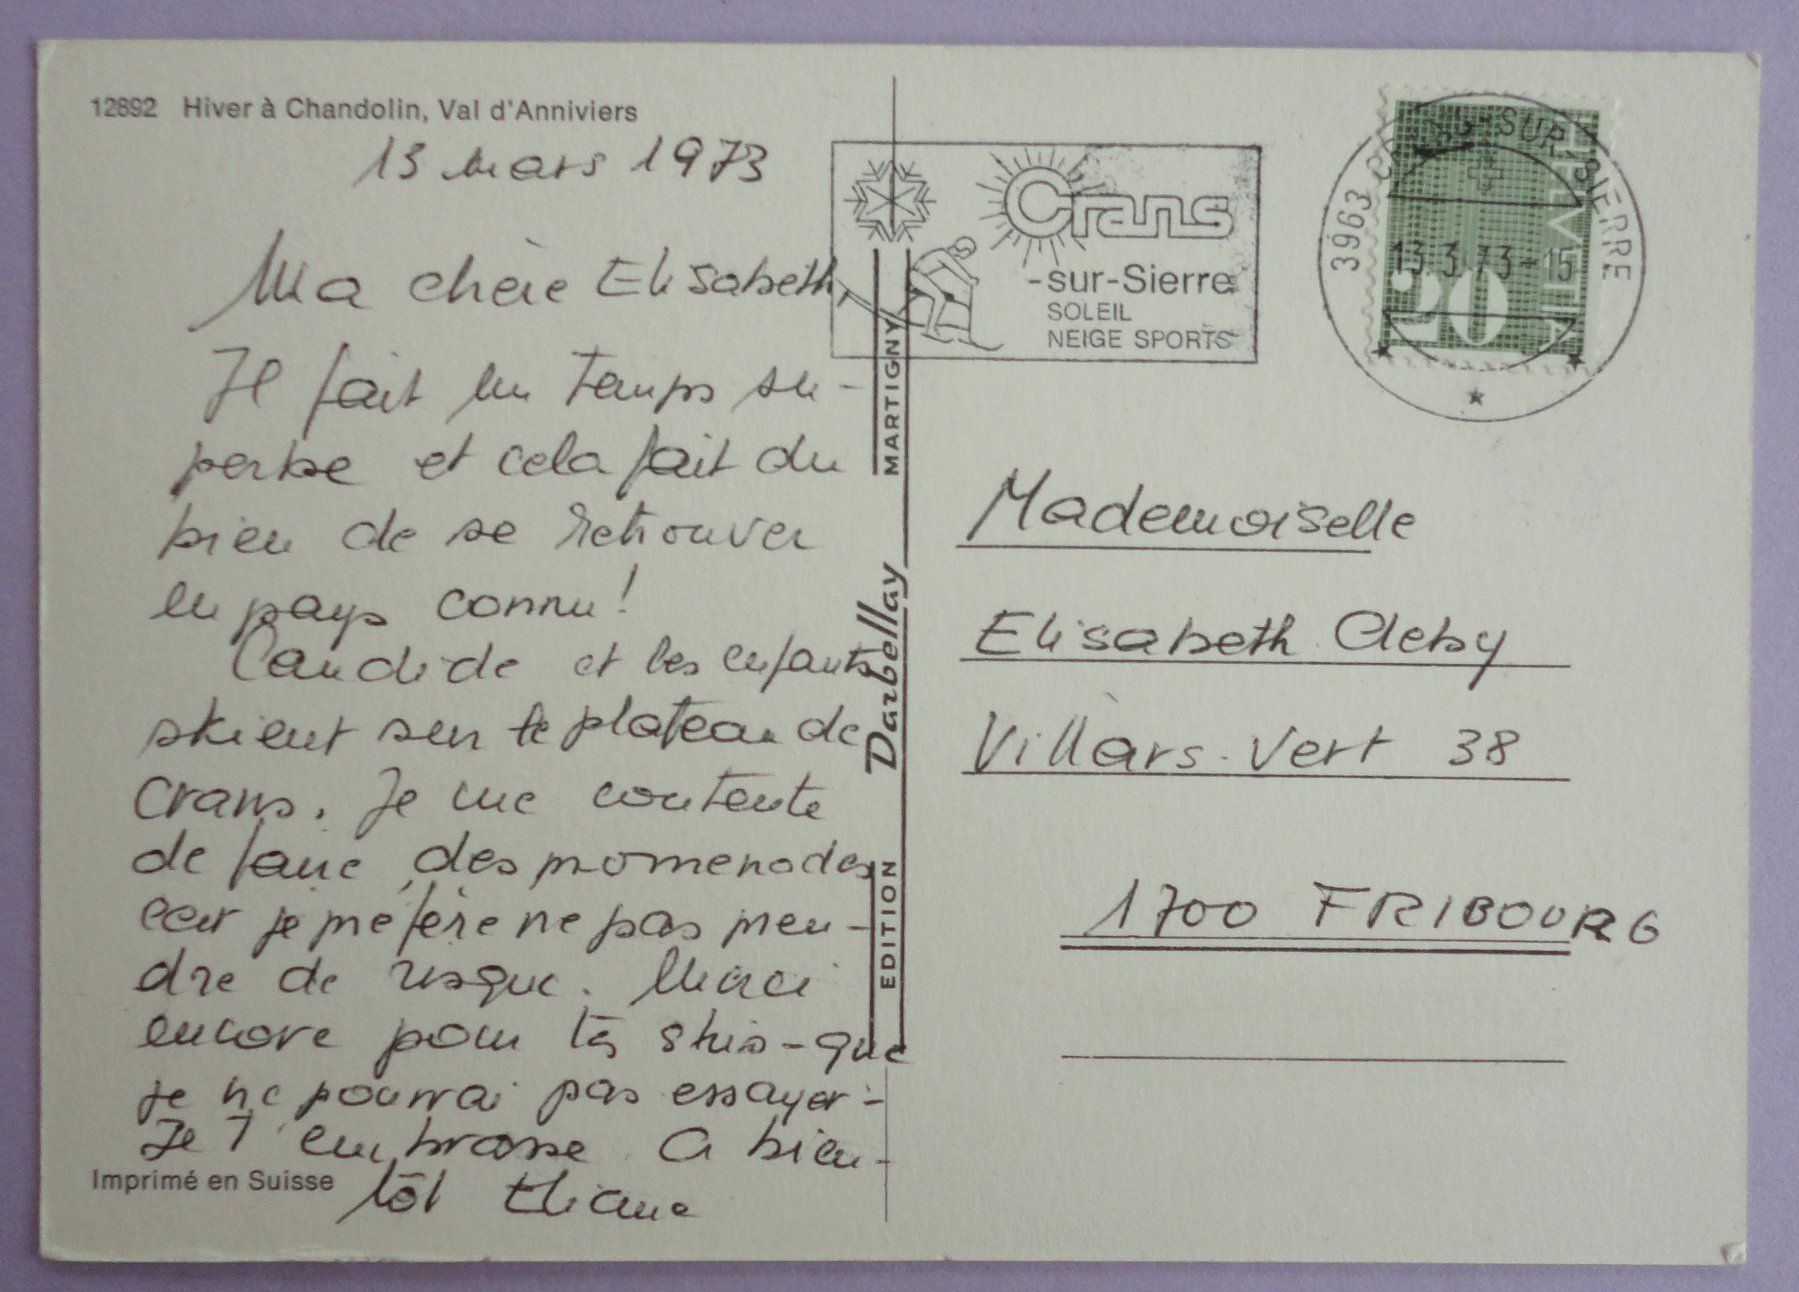 12892 Hiver à Chandolin, Val d'Anniviers
13 mars 1973
Ma chère Elisabeth
Il fait un temps su-
perbe et cela fait du
bien de se retrouver
en pays connu!
Candide et les enfants
skient sur le plateau de
Crans. Je me contente
de faire des promenades
car je préfère ne pas pren-
dre de risque. Merci
encore pour tes skis - que
je ne pourrai pas essayer -
Je t'embrasse A bien-
tôt Eliane
Imprimé en Suisse
EDITION Darbellay MARTIGNY
Crans
-sur-Sierre
SOLEIL
NEIGE SPORTS
3963 CRANS-SUR-SIERRE
13.3.73-15
HELVETIA
20
Mademoiselle
Elisabeth Aeby
Villars-Vert 38
1700 FRIBOURG